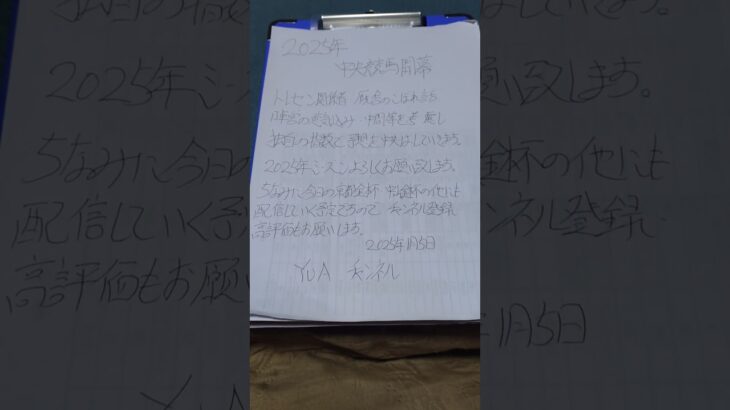 2025年
中央競馬開幕
トレセン関係者 厩舎のこぼれ話
陣営の 中間等を考慮し
独自の指数で予想を していきます。
2025年シーズンよろしくお願い致します。
ちなみに今日の京都金杯 中山金杯の他にも
配信していく予定ですので チャンネル登録
高評価もお願いします。
2025年1月5日
YUA チャンネル